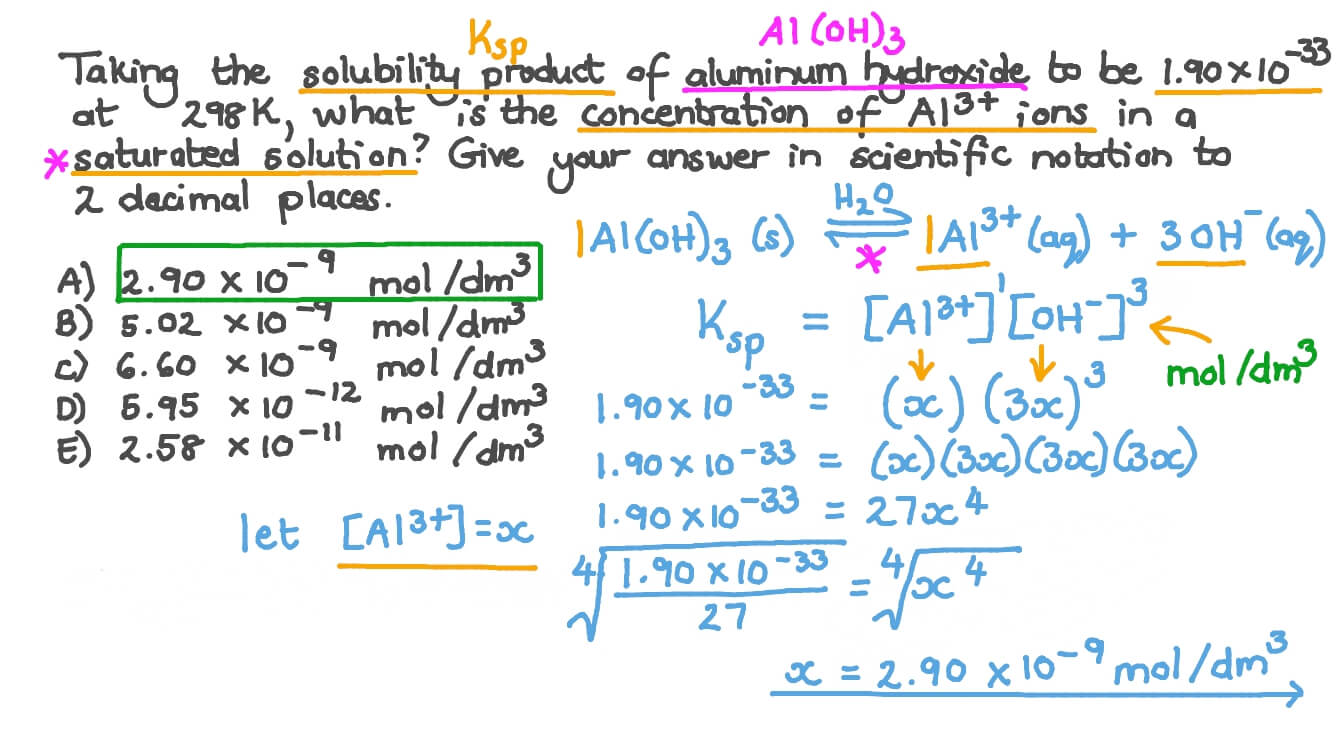 Ksp Al(OH)₃
Taking the solubility product of aluminum hydroxide to be 1.90×10⁻³³
at 298K, what is the concentration of Al³⁺ ions in a
*saturated solution? Give your answer in scientific notation to
2 decimal places.
A) 2.90 × 10⁻⁹ mol/dm³
B) 5.02 × 10⁻⁹ mol/dm³
C) 6.60 × 10⁻⁹ mol/dm³
D) 5.95 × 10⁻¹² mol/dm³
E) 2.58 × 10⁻¹¹ mol/dm³
let [Al³⁺]=x
H₂O
1Al(OH)₃ (s) ⇌ 1Al³⁺(aq) + 3OH⁻(aq)
*
Ksp = [Al³⁺]¹[OH⁻]³
mol/dm³
1.90×10⁻³³ = (x)(3x)³
1.90×10⁻³³ = (x)(3x)(3x)(3x)
1.90×10⁻³³ = 27x⁴
⁴√(1.90×10⁻³³/27) = ⁴√x⁴
x = 2.90 × 10⁻⁹ mol/dm³